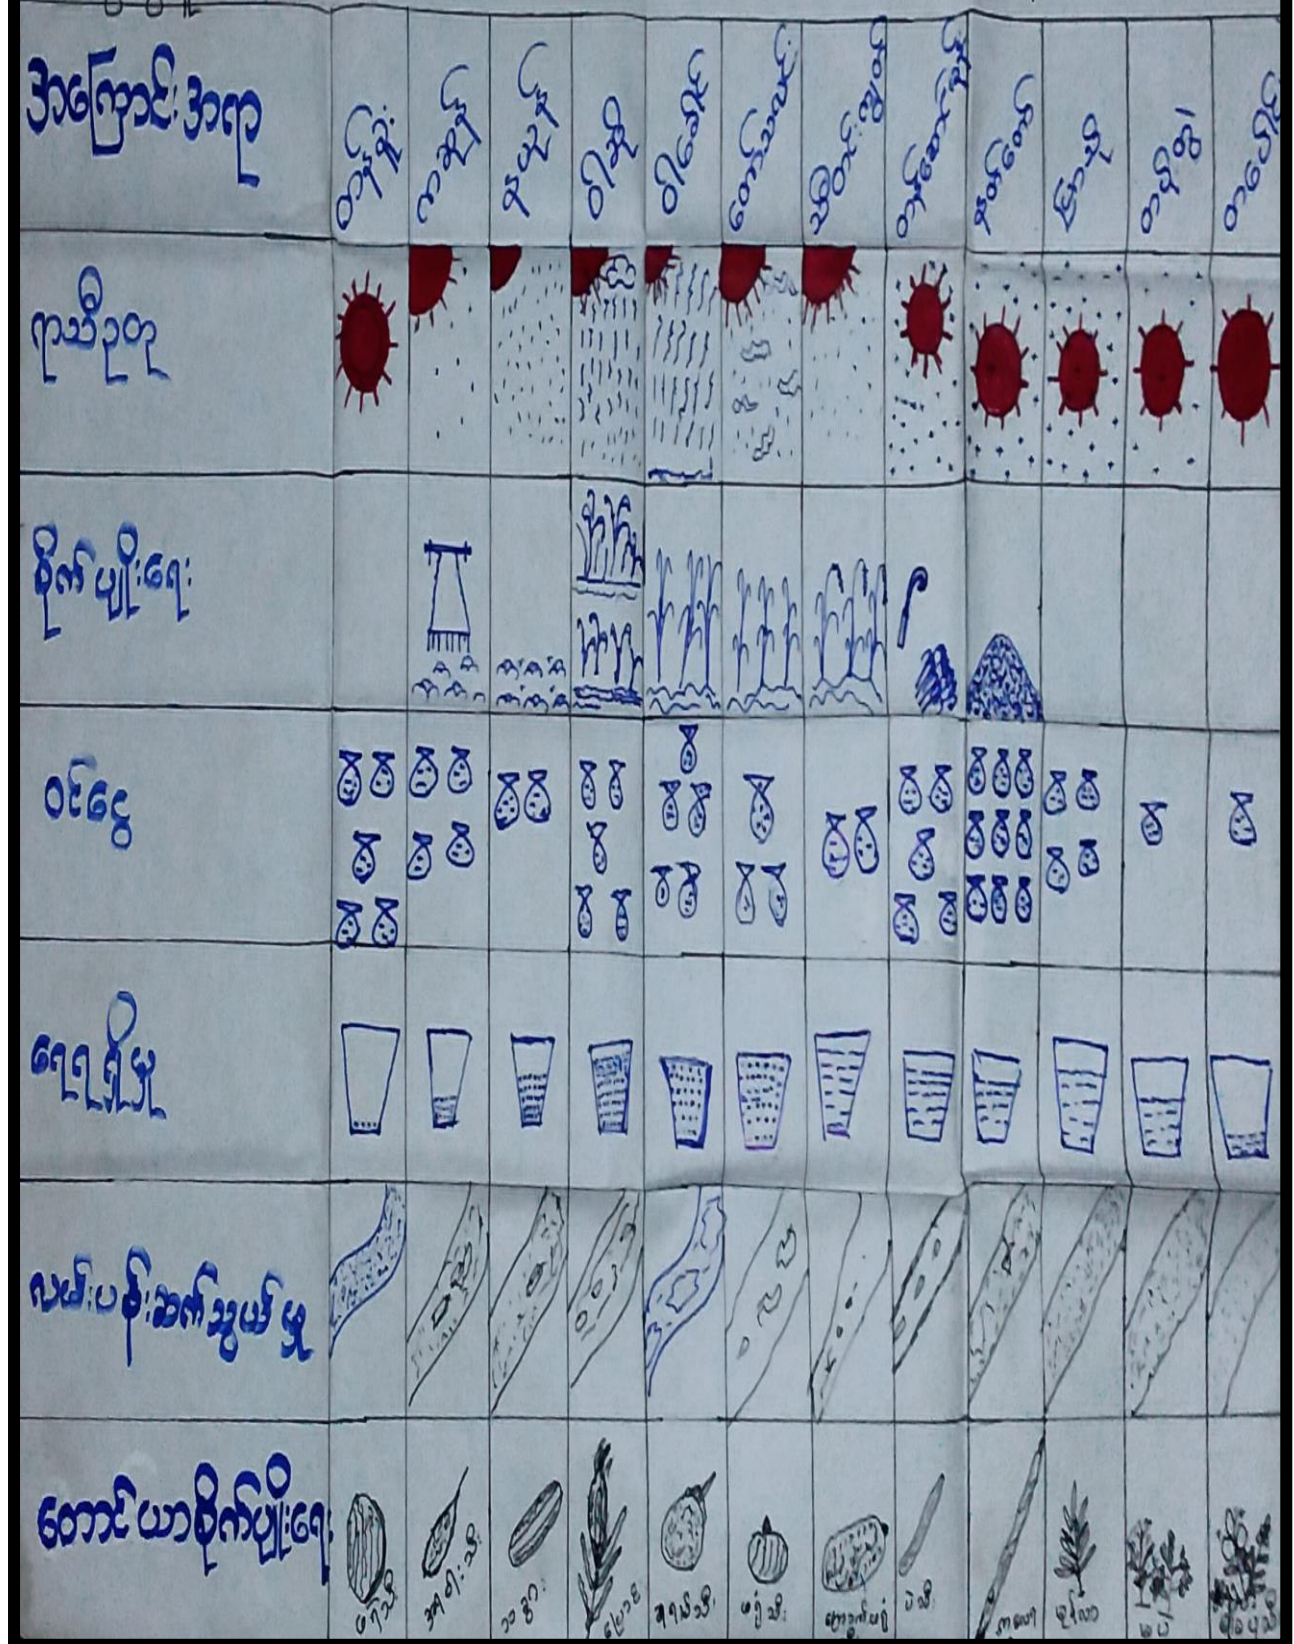 အကြောင်းအရာ
တန်ခူး
ကဆုန်
နယုန်
ဝါဆို
ဝါခေါင်
တော်သလင်း
သီတင်းကျွတ်
တန်ဆောင်မုန်း
နတ်တော်
ပြာသို
တပို့တွဲ
တပေါင်း
ရာသီဥတု
စိုက်ပျိုးရေး
ဝင်ငွေ
ရေရရှိမှု
လမ်းပန်းဆက်သွယ်မှု
တောင်ယာစိုက်ပျိုးရေး
ဖရဲသီး
သခွား
ပြောင်း
ခရမ်းသီး
ဖရုံသီး
ပဲသီး
မုန်လာ